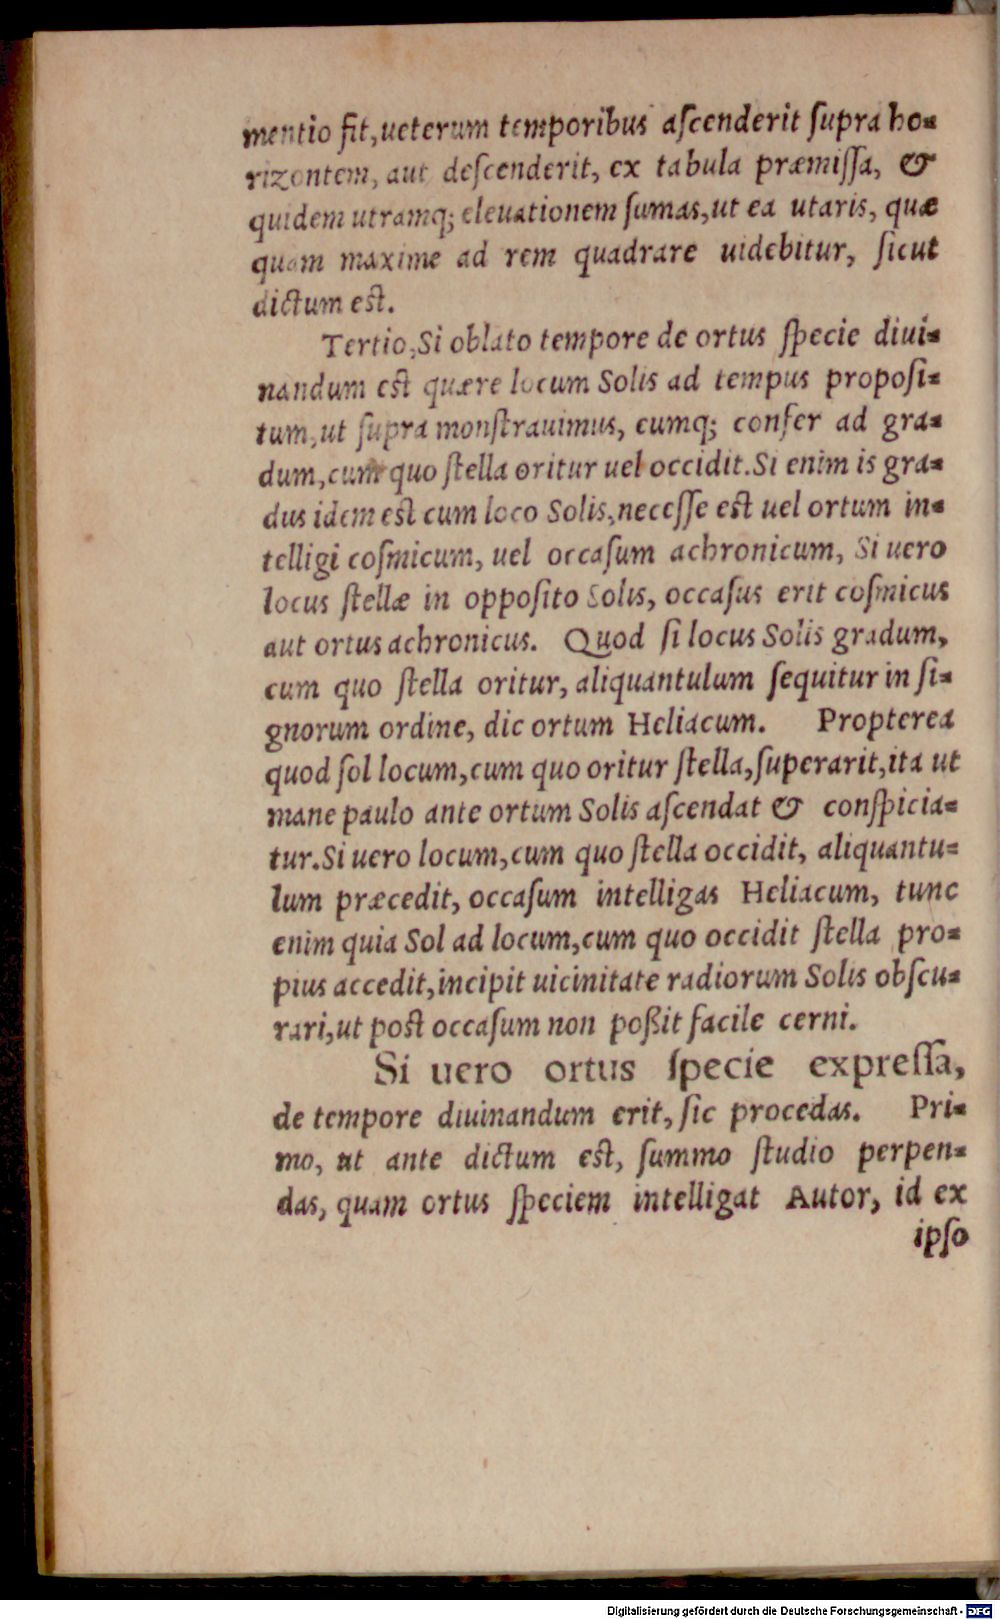 mentio fit, ueterum temporibus aſcenderit ſupra ho-
rizontem, aut deſcenderit, ex tabula præmiſſa, &
quidem utramq; eleuationem ſumas, ut ea utaris, quæ
quam maxime ad rem quadrare uidebitur, ſicut
dictum eſt.
Tertio, Si oblato tempore de ortus ſpecie diui-
nandum eſt quære locum Solis ad tempus propoſi-
tum, ut ſupra monſtrauimus, eumq; confer ad gra-
dum, cum quo ſtella oritur uel occidit. Si enim is gra-
dus idem eſt cum loco Solis, neceſſe eſt uel ortum in-
telligi coſmicum, uel occaſum achronicum, Si uero
locus ſtellæ in oppoſito Solis, occaſus erit coſmicus
aut ortus achronicus. Quod ſi locus Solis gradum,
cum quo ſtella oritur, aliquantulum ſequitur in ſi-
gnorum ordine, dic ortum Heliacum. Propterea
quod ſol locum, cum quo oritur ſtella, ſuperarit, ita ut
mane paulo ante ortum Solis aſcendat & conſpicia-
tur. Si uero locum, cum quo ſtella occidit, aliquantu-
lum præcedit, occaſum intelligas Heliacum, tunc
enim quia Sol ad locum, cum quo occidit ſtella pro-
pius accedit, incipit uicinitate radiorum Solis obſcu-
rari, ut poſt occaſum non poßit facile cerni.
Si uero ortus ſpecie expreſſa,
de tempore diuinandum erit, ſic procedas. Pri-
mo, ut ante dictum eſt, ſummo ſtudio perpen-
das, quam ortus ſpeciem intelligat Autor, id ex
ipſo
Digitalisierung gefördert durch die Deutsche Forschungsgemeinschaft - DFG